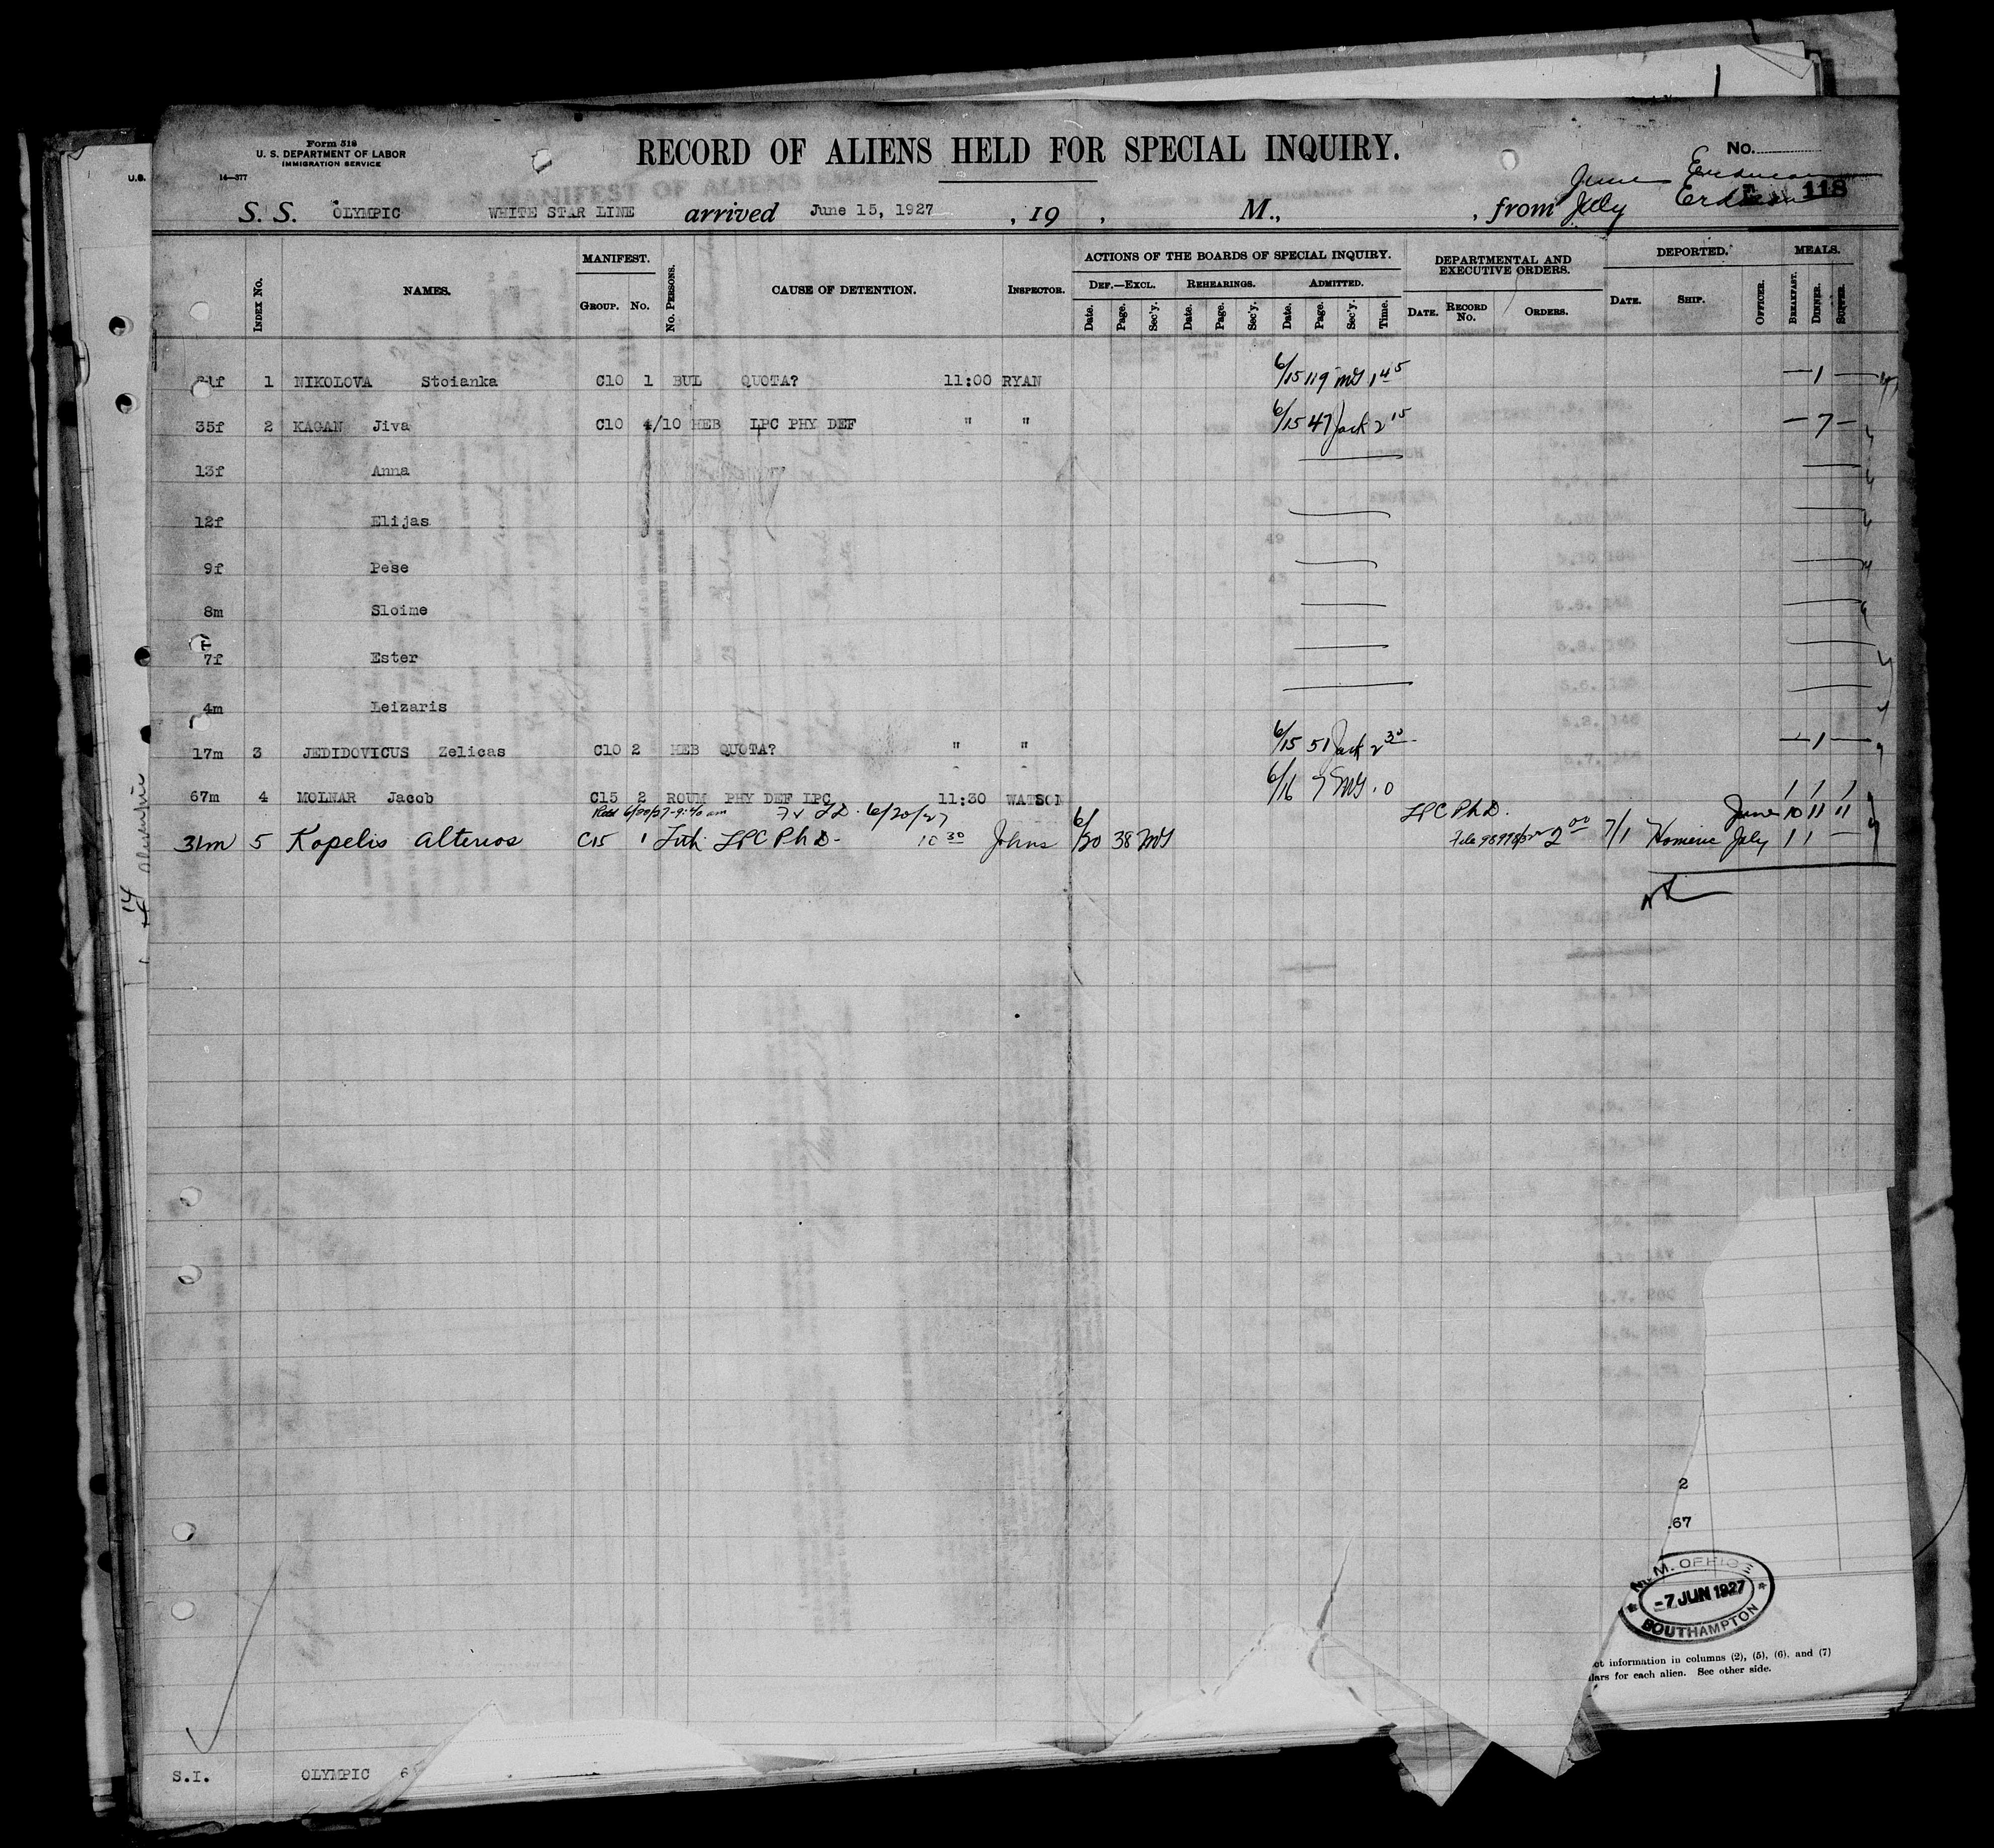 Form 518
U. S. DEPARTMENT OF LABOR
IMMIGRATION SERVICE
14—377
U.S.
RECORD OF ALIENS HELD FOR SPECIAL INQUIRY.
No.
118
S. S. OLYMPIC WHITE STAR LINE arrived June 15, 1927, 19 , M., , from June July
INDEX No. NAMES. MANIFEST. GROUP. No. No. PERSONS. CAUSE OF DETENTION. INSPECTOR. ACTIONS OF THE BOARDS OF SPECIAL INQUIRY. DEPARTMENTAL AND EXECUTIVE ORDERS. DEPORTED. MEALS.
DEF.—EXCL. REHEARINGS. ADMITTED.
Date. Page. Sec'y. Date. Page. Sec'y. Date. Page. Sec'y. Time. DATE. RECORD No. ORDERS. DATE. SHIP. OFFICER. BREAKFAST. DINNER. SUPPER.
1 NIKOLOVA Stoianka C10 1 BUL QUOTA? 11:00 RYAN 6/15 119 MG 1 45 — 1 —
35f 2 KAGAN Jiva C10 4/10 HEB LPC PHY DEF " " 6/15 47 Jack 2 15 — 7 —
13f Anna
12f Elijas
9f Pese
8m Sloime
7f Ester
4m Leizaris
17m 3 JEDIDOVICUS Zelicas C10 2 HEB QUOTA? " " 6/15 51 Jack 2 30 — 1 —
67m 4 MOLNAR Jacob C15 2 ROUM PHY DEF LPC 11:30 WATSON 6/16 7 MG 1 1 1
6/20/27-9:40 am 6/20/27 LPC PhD. June 10 11 11
31m 5 Kopelis Alterios C15 1 Lith. LPC PhD- 10 30 Johns 6/20 38 MG 2 00 7/1 Homeric July 1 1 —
S.I. OLYMPIC 6
2
67
M. OFFICE
-7 JUN 1927
SOUTHAMPTON
information in columns (2), (5), (6), and (7)
for each alien. See other side.